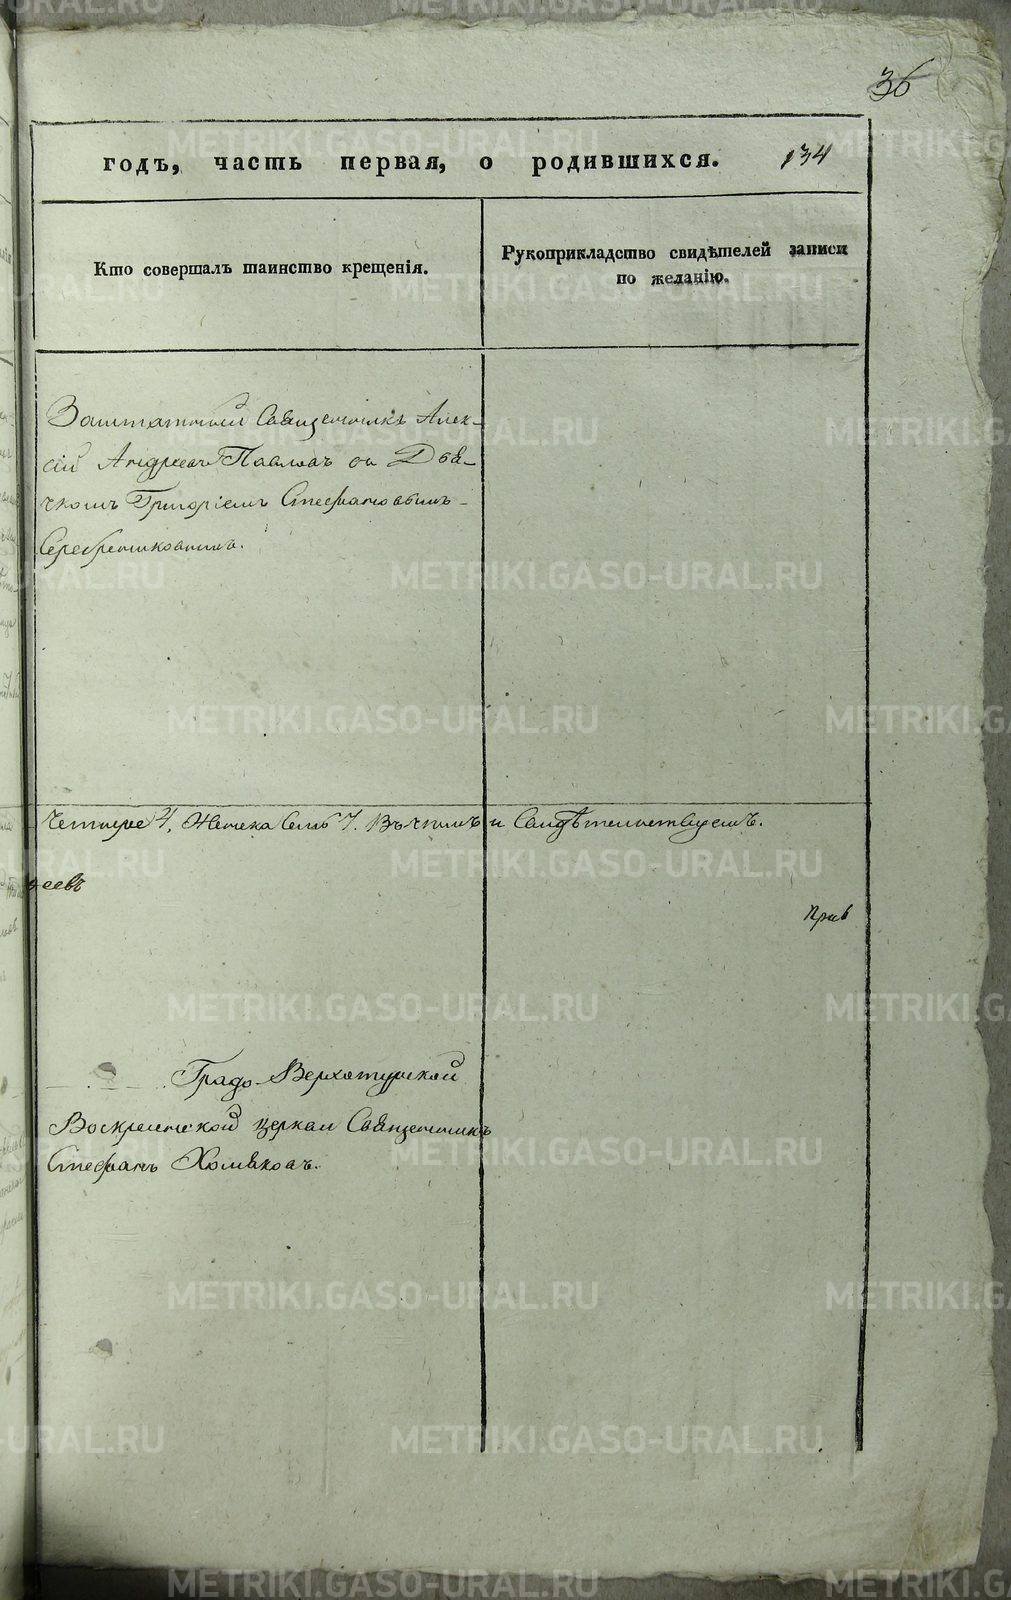 36
годъ, часть первая, о родившихся. 134
Кто совершалъ таинство крещенія.
Рукоприкладство свидѣтелей записи
по желанію.
Заштатный Священникъ Алек-
сій Андреевъ Павловъ съ Дья-
чкомъ Григоріемъ Стефановымъ
Серебренниковымъ.
Четыре 4, Женска Семь 7. Въ чемъ и Свидѣтельствуемъ.
еевъ
Градо-Верхотурской
Воскресенской церкви Священникъ
Стефанъ Хомяковъ.
METRIKI.GASO-URAL.RU